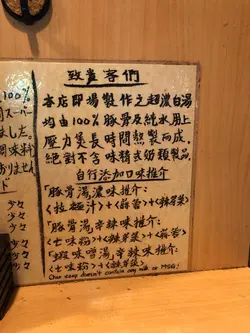 致雀客們
本店即場製作之超濃白湯
均由100%豚骨及純水用上
壓力煲長時間熬製而成.
絕對不含味精或奶類製品.
自行添加口味推介
「豚骨湯,濃味推介:
<拉麵汁>+<蒜蓉>+<辣芽菜>
「豚骨湯,辛辣味推介:
<七味粉>+<辣芽菜>+<蒜蓉>
「蝦味噌湯,辛辣味推介:
<七味粉>+<辣芽菜>
Our soup doesn't contain any milk or MSG!
100%
スーパー
ました。
調味料
おりません
ド
少々
少々
少々
少々